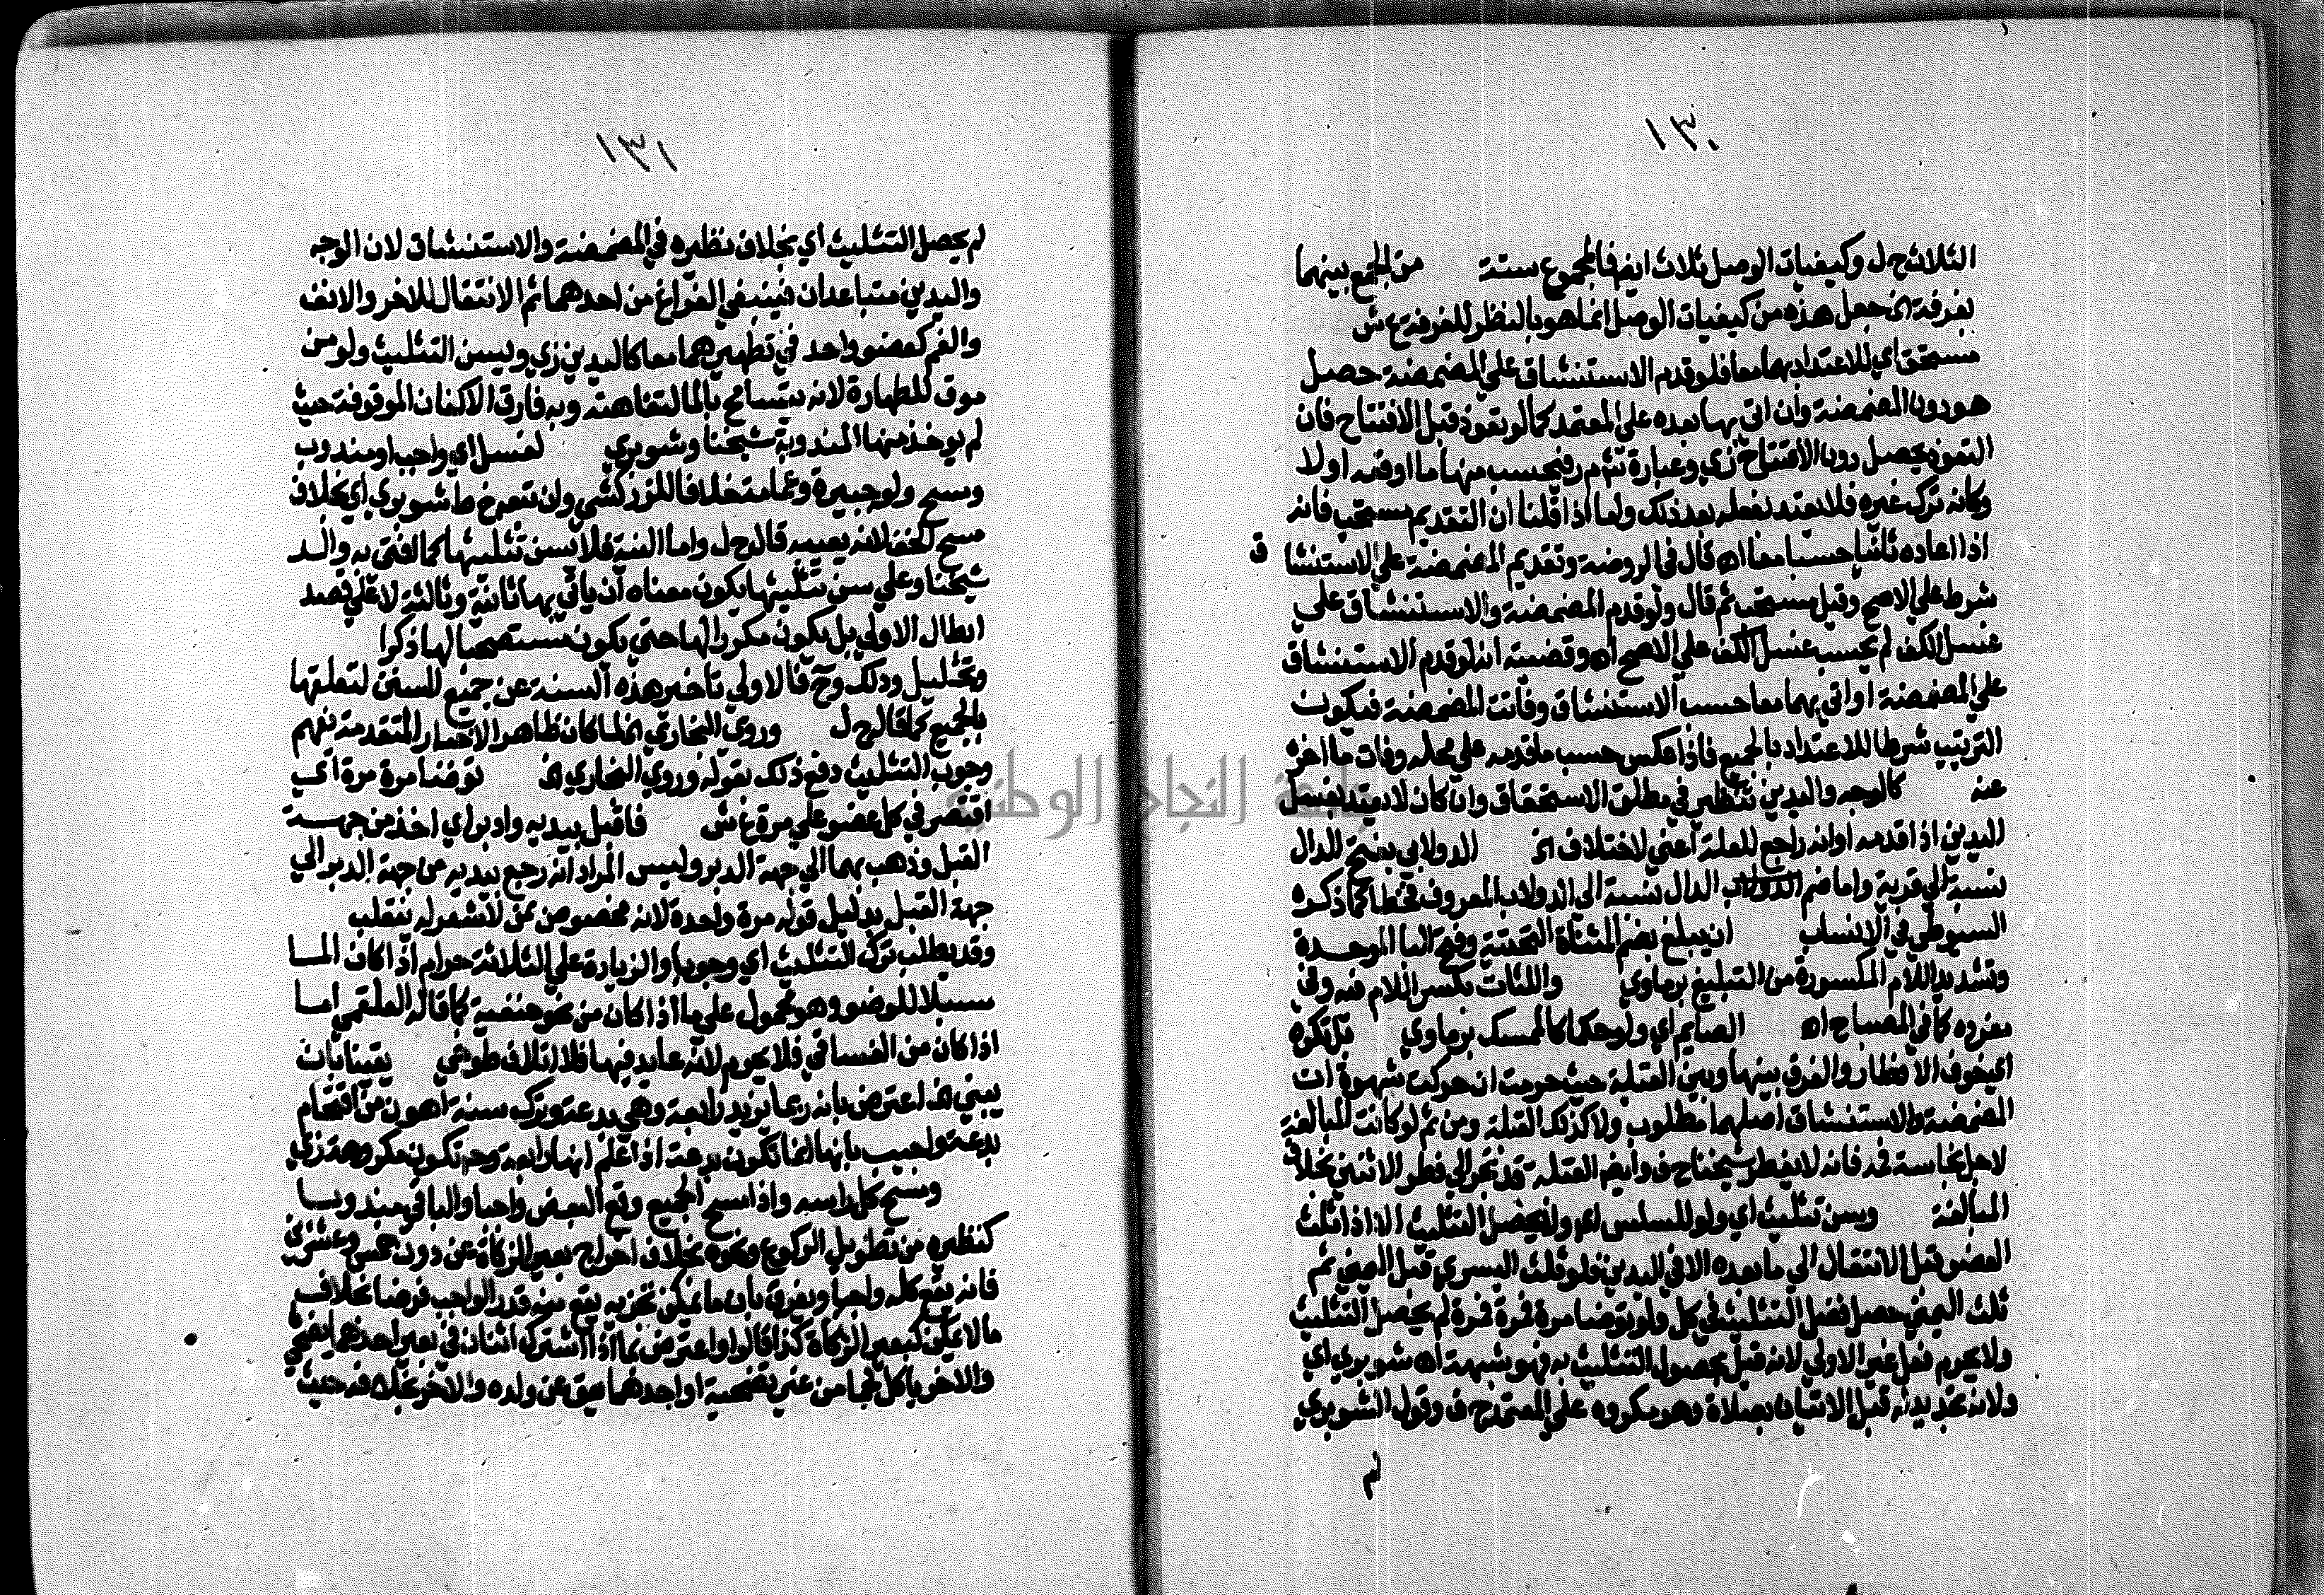 ١٣٠
الثلاث ح ل وكيفيات الوصل ثلاث ايضا فالمجموع ستة من الجمع بينهما
بغرفة الخ جعل هذه من كيفيات الوصل انما هو بالنظر للغرفة ع ش
مستحق اي للاعتداد بهما معا فلو قدم الاستنشاق على المضمضة حصل
هو دون المضمضة وان اتى بها بعده على المعتمد كما لو تعوذ قبل الافتتاح فان
التعوذ يحصل دون الافتتاح زي وعبارة شم ر فيحسب منها ما اوقعه اولا
وكانه ترك غيره فلا يعتد بفعله بعد ذلك واما اذا قلنا ان التقديم مستحب فانه
اذا اعاده ثانيا حسبا معا اه قال في الروضة وتقديم المضمضة علي الاستنشاق
شرط علي الاصح وقيل مستحب ثم قال ولو قدم المضمضة والاستنشاق علي
غسل الكف لم يحسب غسل الكف علي الاصح اه وقضيته انه لو قدم الاستنشاق
علي المضمضة او اتي بهما معا حسب الاستنشاق وفاتت المضمضة فيكون
الترتيب شرطا للاعتداد بالجميع فاذا عكس حسب ما قدمه علي محله وفات ما اخر
عنه كالوجه واليدين تنظير في مطلق الاستحقاق وان كان لا يعتد بغسل
اليدين اذا قدمه او انه راجع للعلة اعني لاختلاف الخ الدولابي بفتح الدال
نسبة الي قرية واما ضم الدولاب الدال نسبة الي الدولاب المعروف فخطا كما ذكره
السيوطي في الانساب ان يبلغ بضم المثناة التحتية وفتح البا الموحدة
وتشديد اللام المكسورة من التبليغ برماوي واللثات بكسر اللام فيه وفي
مفرده كما في المصباح اه الصايم اي ولو حكما كالممسك برماوي بل تكره
اي خوف الافطار والفرق بينها وبين القبلة حيث حرمت ان حركت شهوة ان
المضمضة والاستنشاق اصلهما مطلوب ولا كذلك القبلة ومن ثم لو كانت المبالغة
لاجل نجاسة فمه فانه لا يفطر شيخنا ح ف وايضا القبلة قد تجر الي فطر الاثنين بخلاف
المبالغة ويسن تثليث اي ولو للسلس اي ولا يحصل التثليث الا اذا ثلث
العضو قبل الانتقال الي ما بعده الا في اليدين فلو ثلث اليسري قبل اليمني ثم
ثلث اليمني حصل فضل التثليث في كل ولو توضا مرة فمرة فمرة لم يحصل التثليث
ولا يحرم فعل غير الاولي لانه قيل بحصول التثليث به فهو شبهة اه شوبري اي
ولانه تجديد له قبل الاتيان بصلاة وهو مكروه علي المعتمد ح ف وقول الشوبري
لم
١٣١
لم يحصل التثليث اي بخلاف نظيره في المضمضة والاستنشاق لان الوجه
واليدين متباعدان فينبغي الفراغ من احدهما ثم الانتقال للاخر والانف
والفم كعضو واحد في تطهيرهما معا كاليدين زي ويسن التثليث ولو من
موق للطهارة لانه يتسامح بالما لتفاهته وبه فارق الاكفان الموقوفة حيث
لم يوخذ منها المندوبة شيخنا وشوبري لغسل اي واجب او مندوب
ومسح ولو جبيرة وعمامة خلافا للزركشي ولان تعدد ط شوبري اي بخلاف
مسح الخف لانه يعيبه قال ح ل واما النية فلا يسن تثليثها كما افتي به والد
شيخنا وعلي سن تثليثها يكون معناه ان ياتي بها ثانية وثالثة لا علي قصد
ابطال الاولي بل يكون مكررا لها حتي يكون مستصحبا لها ذكرا
وتخليل ودلك وح فالاولي تاخير هذه السنة عن جميع السنن لتعلقها
بالجميع كما قال ح ل وروي البخاري الخ لما كان ظاهر الاخبار المتقدمة تفهم
وجوب التثليث دفع ذلك بقوله وروي البخاري الخ توضا مرة مرة اي
اقتصر في كل عضو علي مرة ع ش فاقبل بيديه وادبر اي اخذ من جهة
القبل وذهب بهما الي جهة الدبر وليس المراد انه رجع بيديه من جهة الدبر الي
جهة القبل بدليل قوله مرة واحدة لانه مخصوص بمن له شعر له ينقلب
وقد يطلب ترك التثليث اي وجوبا والزيادة علي الثلاثة حرام اذا كان الما
مسبلا للوضو وهو محمول علي ما اذا كان من نحو حنفية كما قاله العلقمي اما
اذا كان من الفساقي فلا يحرم لانه عايد فيها فلا اتلاف طوخي يقينا بان
يبني الخ اعترض بانه ربما يزيد رابعة وهي بدعة وترك سنة اهون من اقتحام
بدعة واجيب بانها انما تكون بدعة اذا علم انها رابعة وح تكون مكروهة زي
ومسح كل راسه واذا مسح الجميع وقع البعض واجبا والباقي مندوبا
كنظيره من تطويل الركوع ونحوه بخلاف اخراج بعير الزكاة عن دون خمس وعشرين
فانه يقع كله واجبا ويفرق بان ما يمكن تجزيه يقع منه قدر الواجب فرضا بخلاف
ما لا يمكن كبعير الزكاة كذا قالوا واعترض بما اذا اشترك اثنان في بعير احدهما يضحي
والاخر ياكل لحما من غير تضحية او احدهما يعق عن ولده والاخر بخلافه حيث